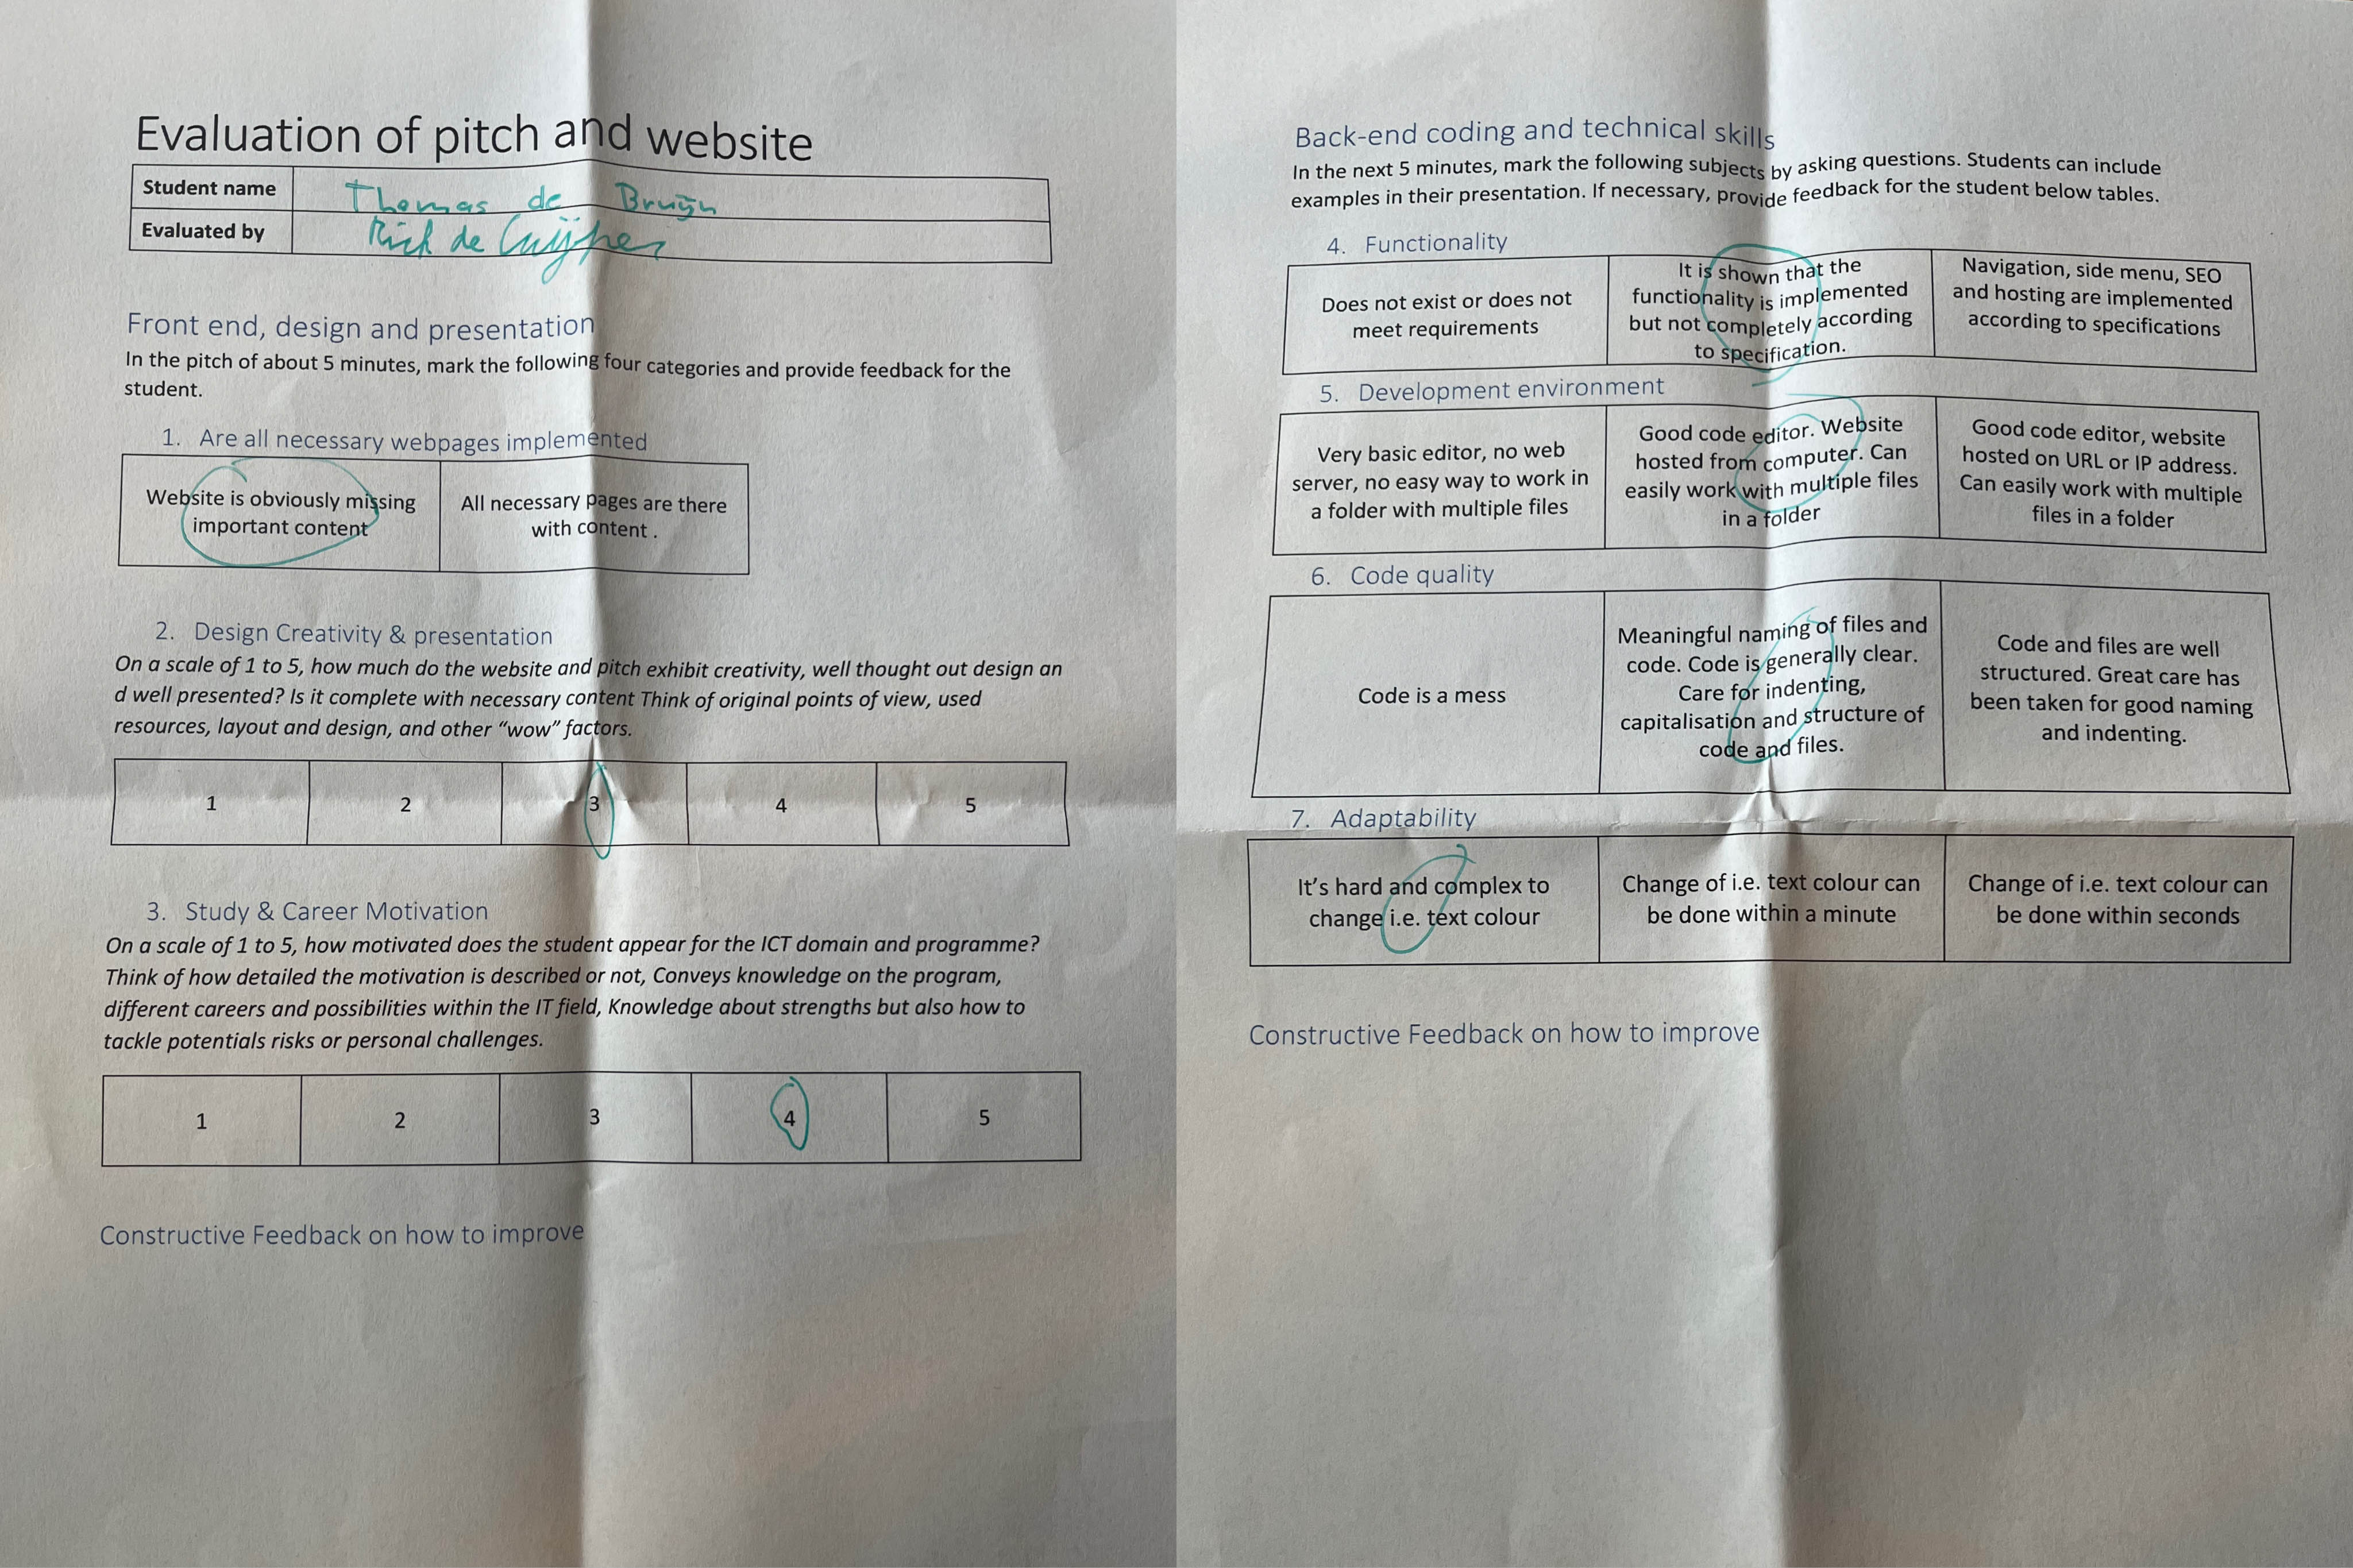 Evaluation of pitch and website
Student name Thomas de Bruijn
Evaluated by Rick de Cuijper
Front end, design and presentation
In the pitch of about 5 minutes, mark the following four categories and provide feedback for the
student.
1. Are all necessary webpages implemented
Website is obviously missing
important content
All necessary pages are there
with content .
2. Design Creativity & presentation
On a scale of 1 to 5, how much do the website and pitch exhibit creativity, well thought out design an
d well presented? Is it complete with necessary content Think of original points of view, used
resources, layout and design, and other “wow” factors.
1 2 3 4 5
3. Study & Career Motivation
On a scale of 1 to 5, how motivated does the student appear for the ICT domain and programme?
Think of how detailed the motivation is described or not, Conveys knowledge on the program,
different careers and possibilities within the IT field, Knowledge about strengths but also how to
tackle potentials risks or personal challenges.
1 2 3 4 5
Constructive Feedback on how to improve
Back-end coding and technical skills
In the next 5 minutes, mark the following subjects by asking questions. Students can include
examples in their presentation. If necessary, provide feedback for the student below tables.
4. Functionality
Does not exist or does not
meet requirements
It is shown that the
functionality is implemented
but not completely according
to specification.
Navigation, side menu, SEO
and hosting are implemented
according to specifications
5. Development environment
Very basic editor, no web
server, no easy way to work in
a folder with multiple files
Good code editor. Website
hosted from computer. Can
easily work with multiple files
in a folder
Good code editor, website
hosted on URL or IP address.
Can easily work with multiple
files in a folder
6. Code quality
Code is a mess
Meaningful naming of files and
code. Code is generally clear.
Care for indenting,
capitalisation and structure of
code and files.
Code and files are well
structured. Great care has
been taken for good naming
and indenting.
7. Adaptability
It’s hard and complex to
change i.e. text colour
Change of i.e. text colour can
be done within a minute
Change of i.e. text colour can
be done within seconds
Constructive Feedback on how to improve